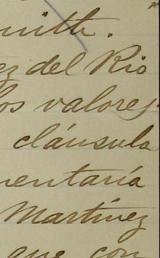 mith.
ez del Rio
los valores
cláusula
mentaría
Martínez
que con